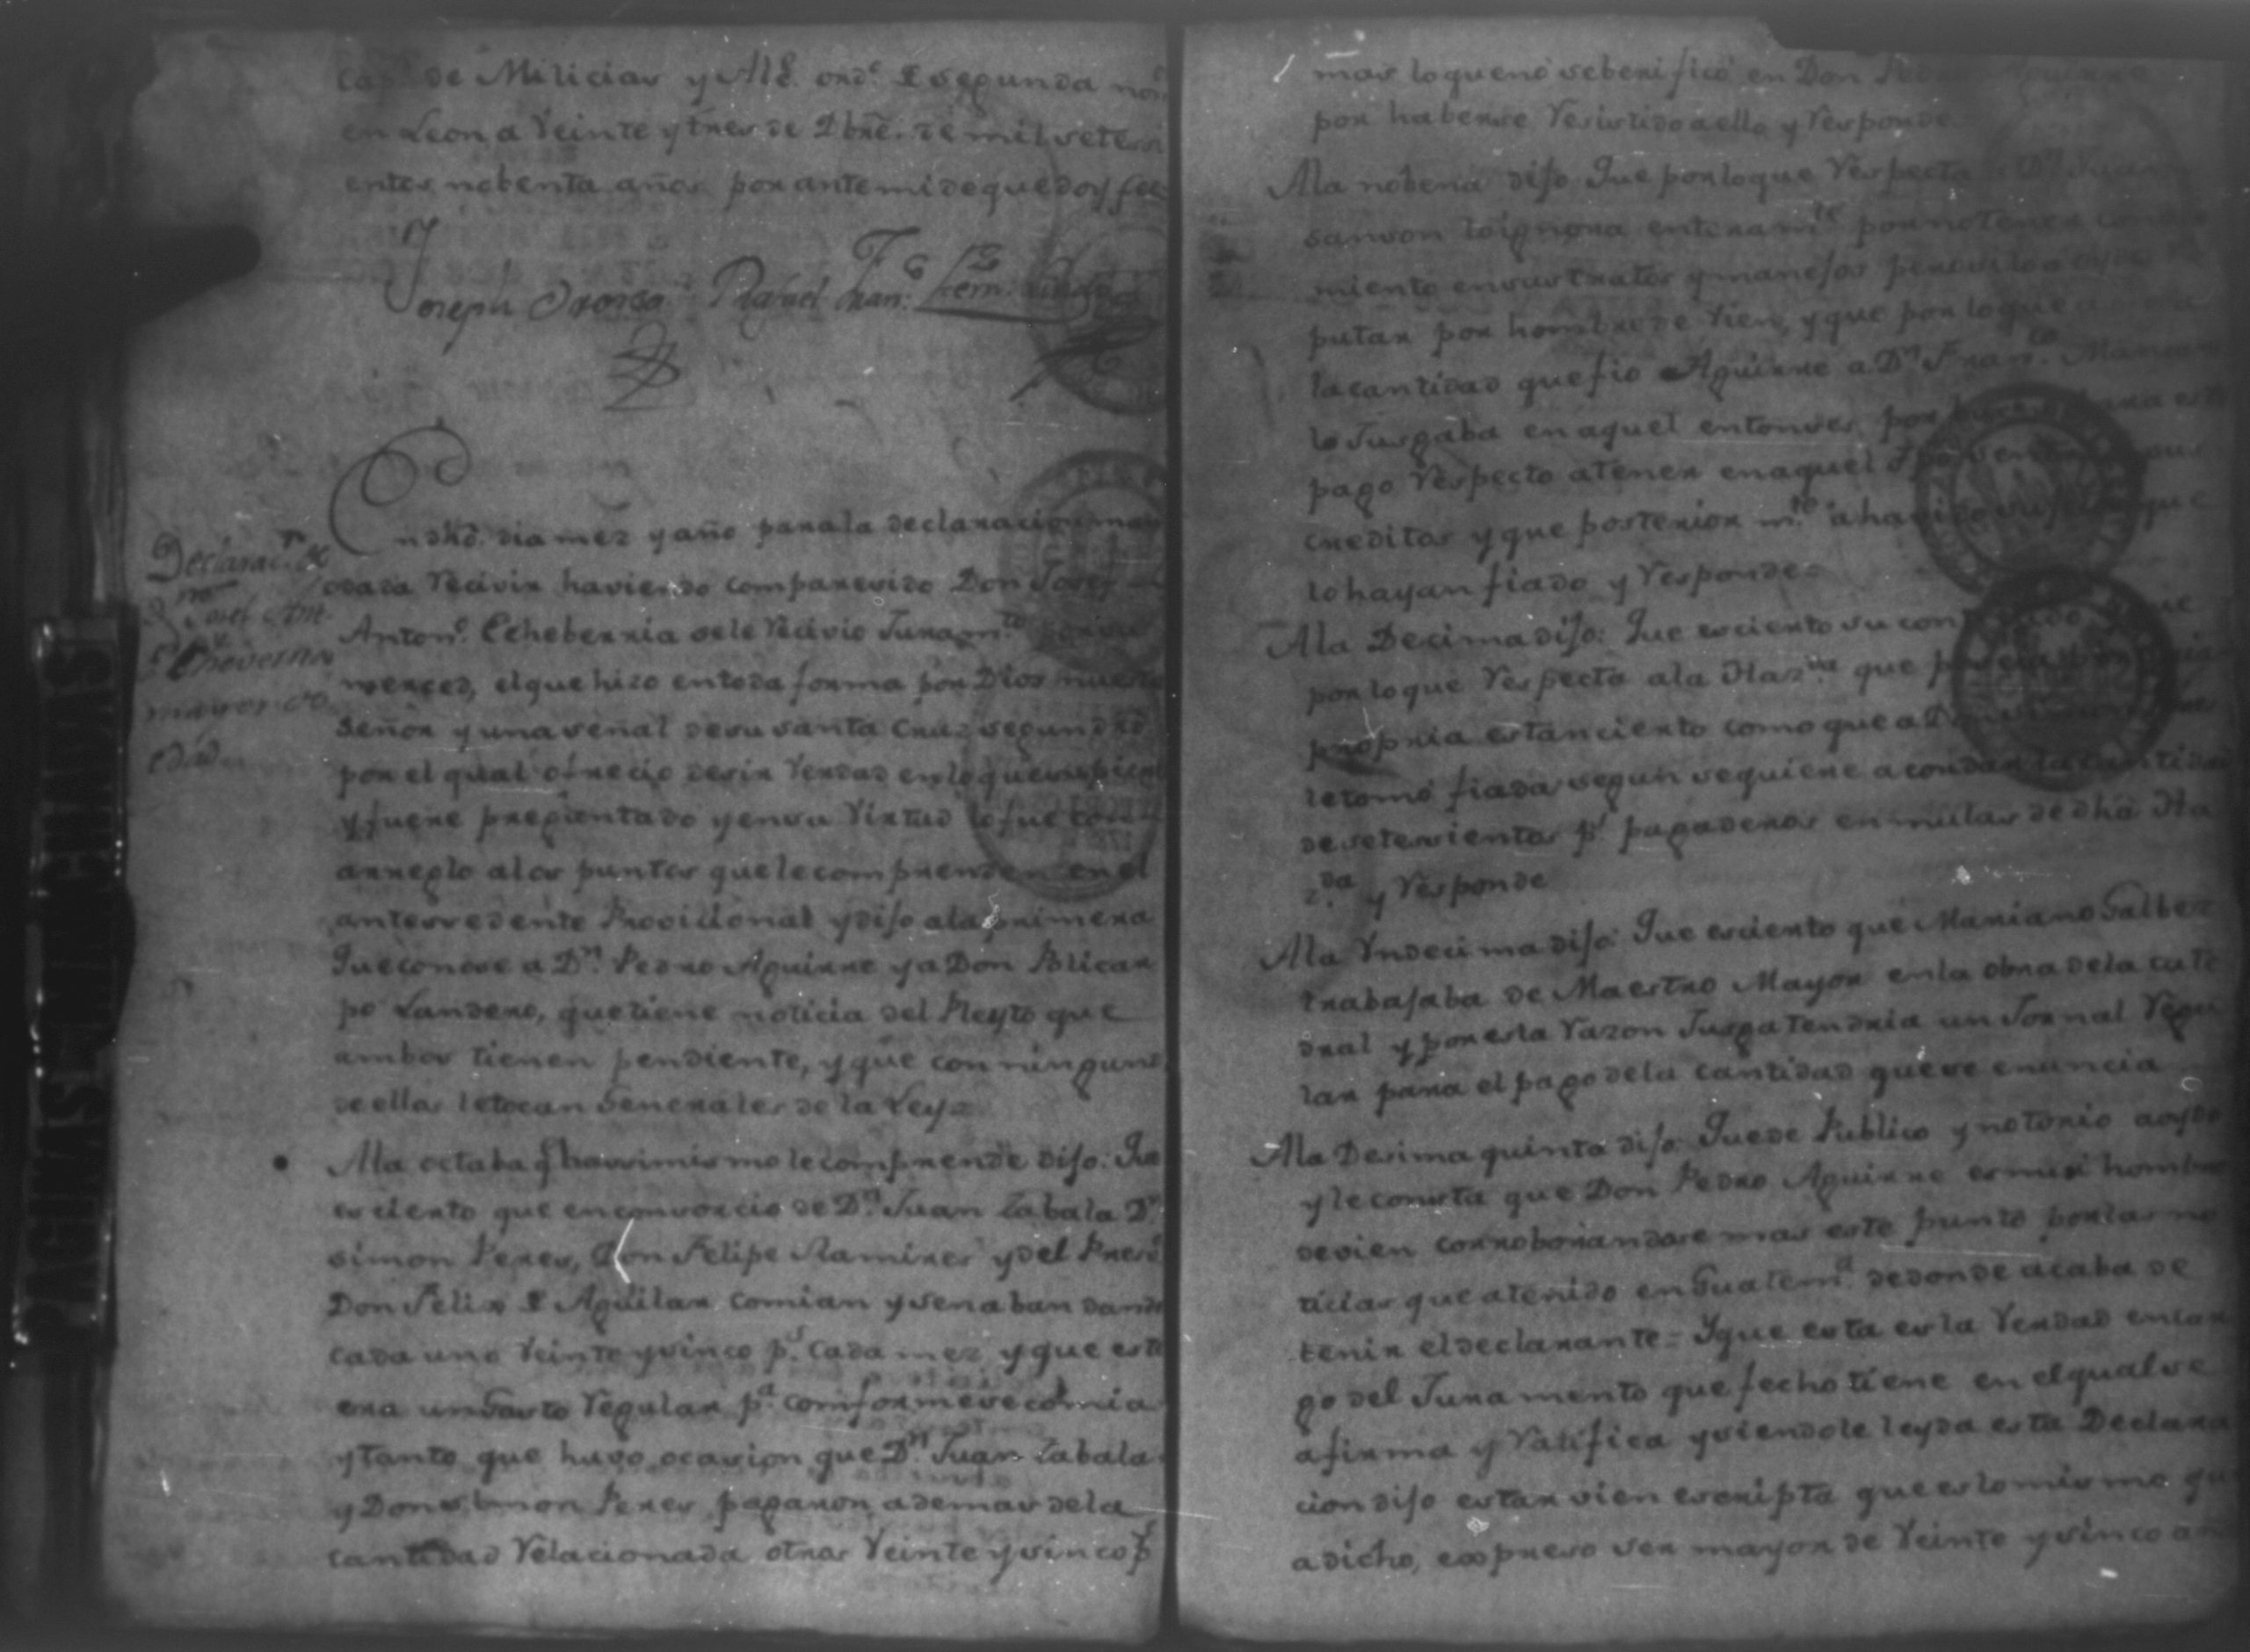 cap.n de Milicias y Alc.e ord.o 2 segunda nom.
en Leon a Veinte y tres de Dbre. de mil setesi
entos nobenta años por ante mi de que doy fee
Joseph Orosco Rafael Fran.co
Declarac.n de
D.n Josef Ant.o
Echeverria
mayor de
edad
En dho. dia mes y año para la declaracion man
dada Recivir haviendo comparesido Don Josef
Anton.o Echeberria se le Recivio Juram.to
merced, el que hizo en toda forma por Dios nuestro
Señor y una señal de su santa Cruz segun dro
por el qual ofrecio desir Verdad en lo que supiere
y fuere preguntado y en su Virtud lo fue con
arreglo a los puntos que le comprenden en el
antesedente Provicional y dijo a la primera
Que conose a D.n Pedro Aguirre y a Don Policar
po Landero, que tiene noticia del Pleyto que
ambos tienen pendiente, y que con ninguno
de ellos le tocan Generales de la Ley=
A la octaba q.e hassimismo le comprende dijo: Que
es cierto que en consorcio de D.n Juan Zabala D.n
Simon Peres, Don Felipe Ramires y del Presv.o
Don Felix 2 Aguilar comian y senaban dando
cada uno Veinte y sinco p.s cada mes y que este
era un Gasto Regular p.a comforme se comia
y tanto que huvo ocasion que D.n Juan Zabala
y Don Simon Peres pagaron ademas de la
cantidad Relacionada otros Veinte y sinco p.s
mas lo que no se benifico en Don Pedro Aguirre
por haberse Resistido a ello y Responde
A la nobena dijo Que por lo que Respecta a D.n Juan
Sanson lo ignora enteram.te por no tener conosi
miento en sus tratos y manejos pero si lo a oydo Re
putar por hombre de Vien, y que por lo que
la cantidad que fio Aguirre a D.n Fran.co
lo Jusgaba en aquel entonses por
pago Respecto a tener en aquel
creditos y que posterior m.te a
lo hayan fiado y Responde=
A la Decima dijo: Que es cierto su con
por lo que Respecta a la Haz.da que
propria estan cierto como que a D
le tomo fiada segun se quiere acordar la cantidad
de setesientos p.s pagaderos en mulas de dha Ha
z.da y Responde
A la Undecima dijo: Que es cierto que Mariano Galbez
trabajaba de Maestro Mayor en la obra de la cate
dral y por esta Razon Jusga tendria un Jornal Regu
lar para el pago de la cantidad que se enuncia
A la Desima quinta dijo: Que de Publico y notorio a oydo
y le consta que Don Pedro Aguirre es mui hombre
de vien corroborandose mas este punto por las no
ticias que a tenido en Guatem.a de donde acaba de
benir el declarante= Y que esta es la Verdad en car
go del Juramento que fecho tiene en el qual se
afirma y Ratifica y siendole leyda esta Declara
cion dijo estar vien escripta que es lo mismo que
a dicho, expreso ser mayor de Veinte y sinco añ